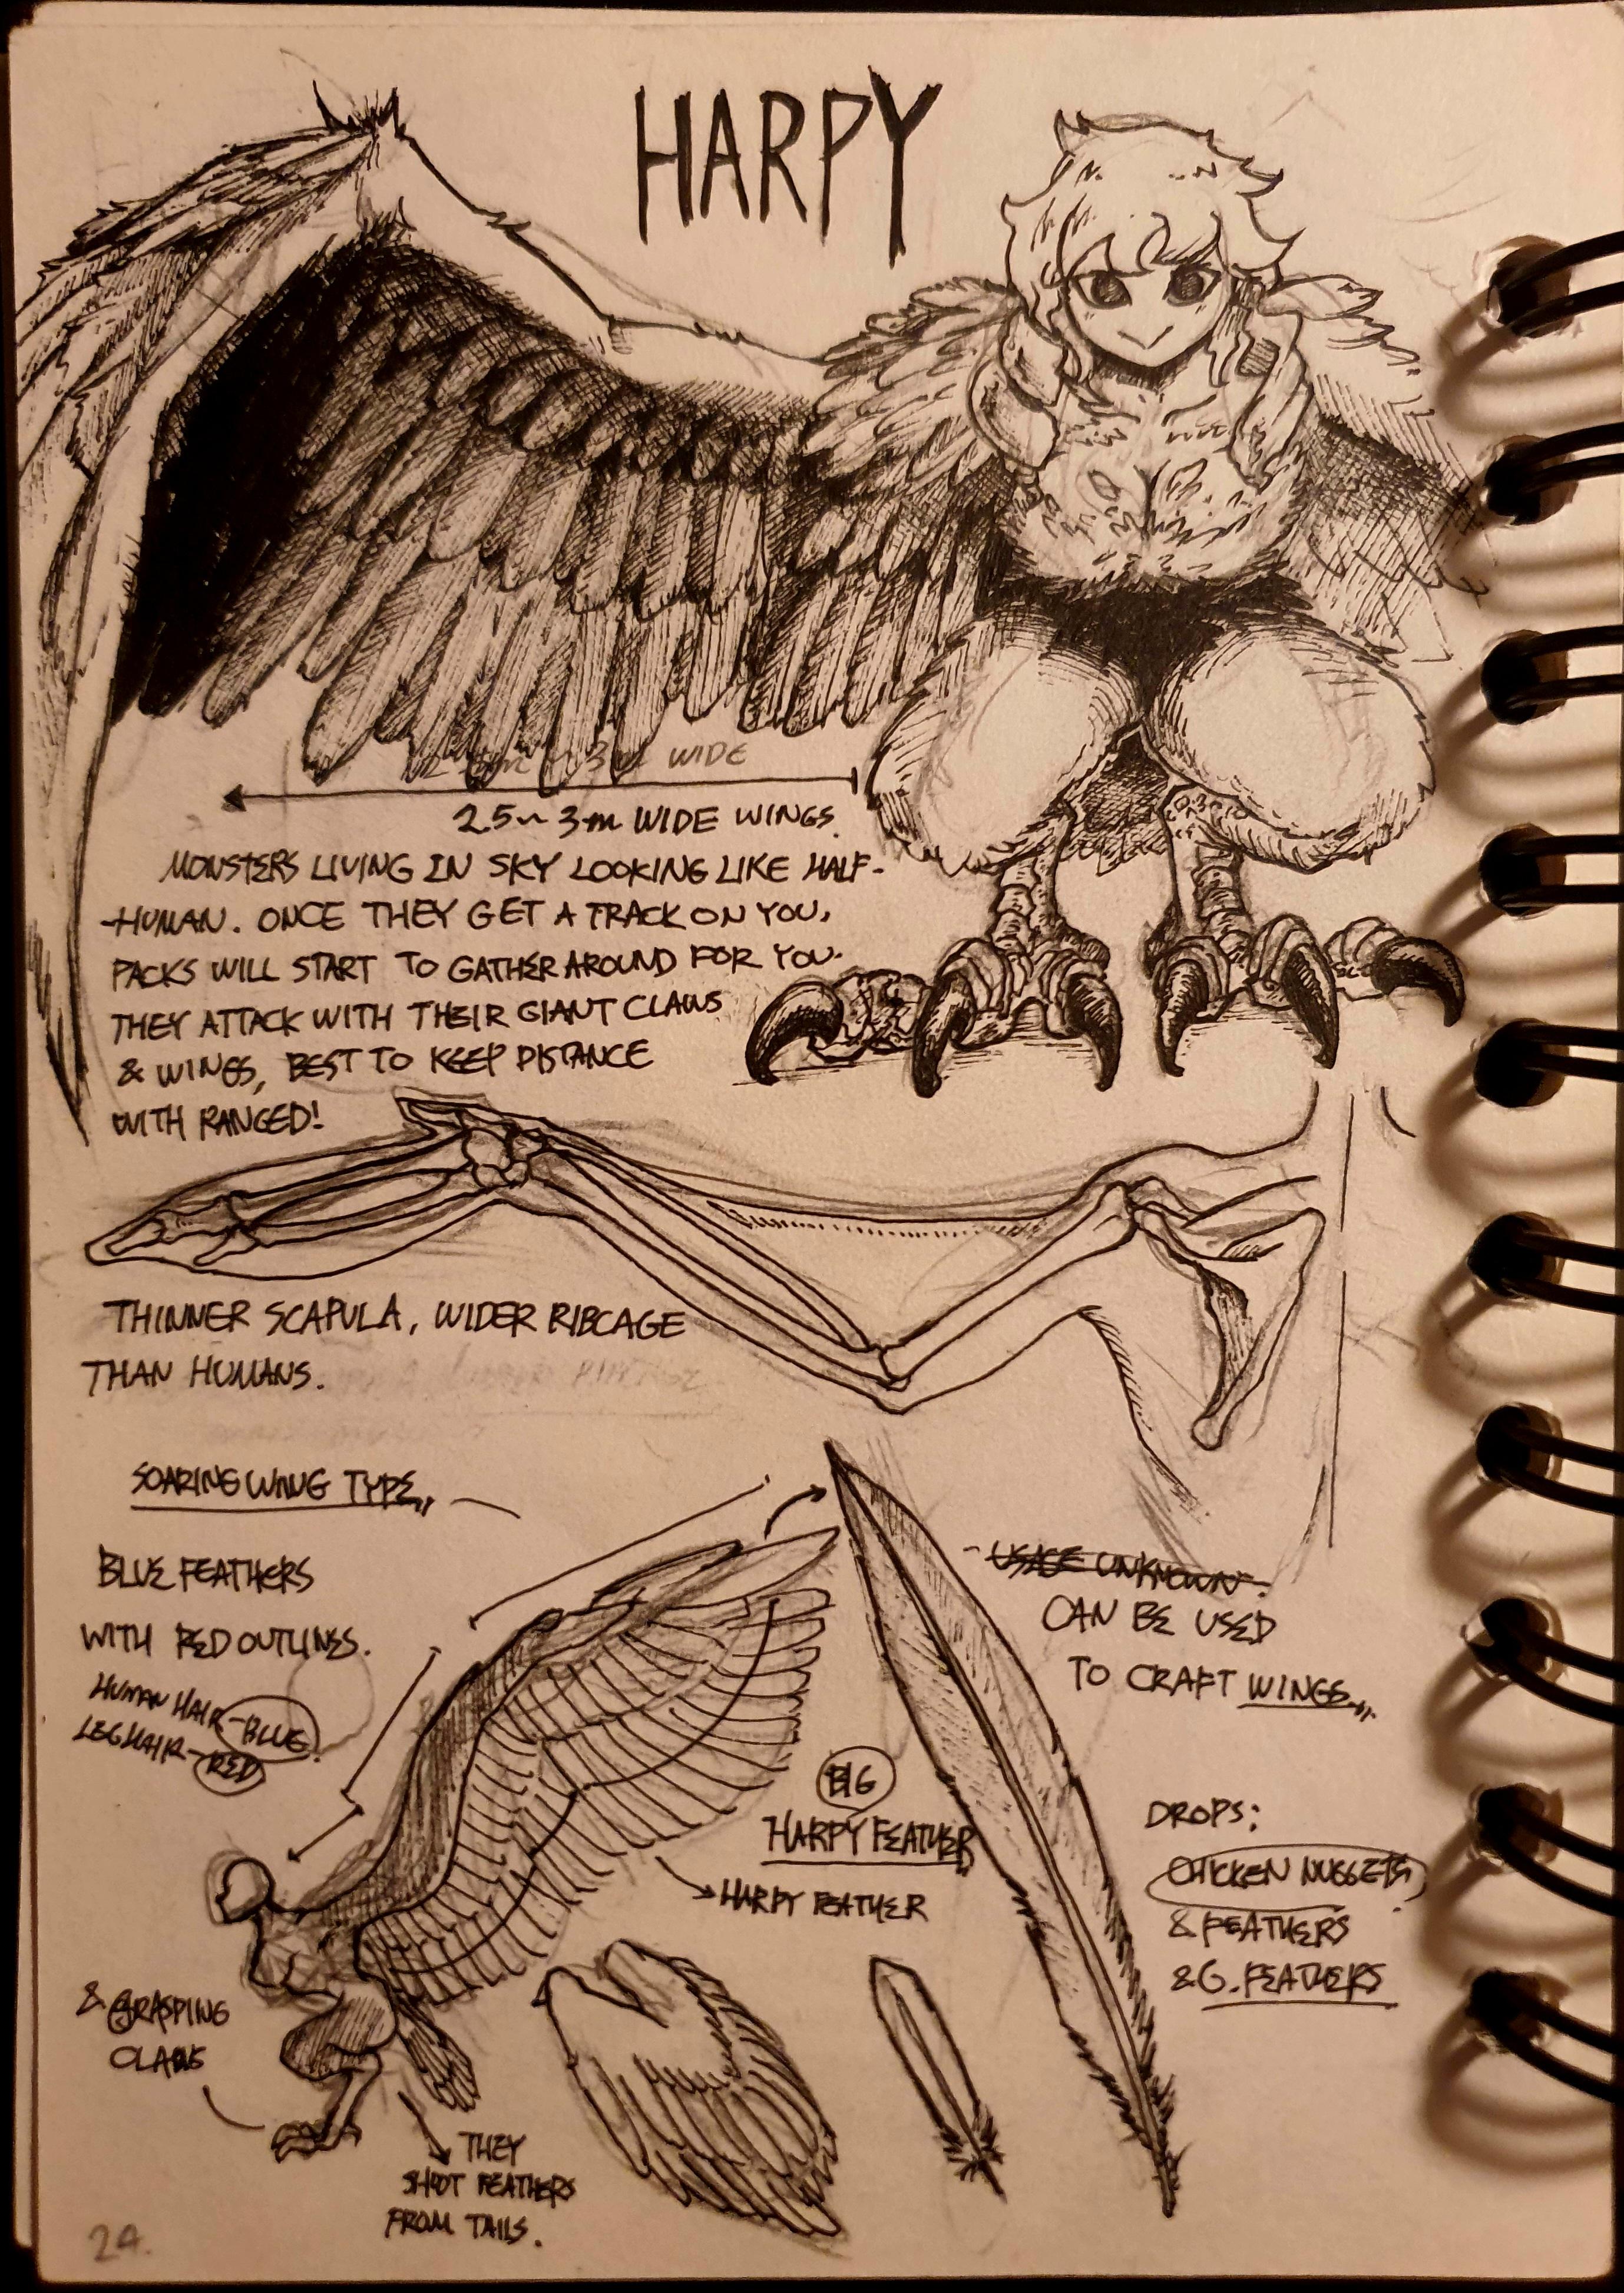 HARPY
WIDE
2.5~3m WIDE WINGS.
MONSTERS LIVING IN SKY LOOKING LIKE HALF-
-HUMAN. ONCE THEY GET A TRACK ON YOU,
PACKS WILL START TO GATHER AROUND FOR YOU.
THEY ATTACK WITH THEIR GIANT CLAWS
& WINGS, BEST TO KEEP DISTANCE
WITH RANGED!
THINNER SCAPULA, WIDER RIBCAGE
THAN HUMANS.
SOARING WING TYPE,,
BLUE FEATHERS
WITH RED OUTLINES.
HUMAN HAIR-BLUE.
LEG HAIR-RED
- USAGE UNKNOWN.
CAN BE USED
TO CRAFT WINGS,,
BIG
HARPY FEATHER
HARPY FEATHER
DROPS:
CHICKEN NUGGETS,
& FEATHERS
& G. FEATHERS
& GRASPING
CLAWS
THEY
SHOOT FEATHERS
FROM TAILS.
24.